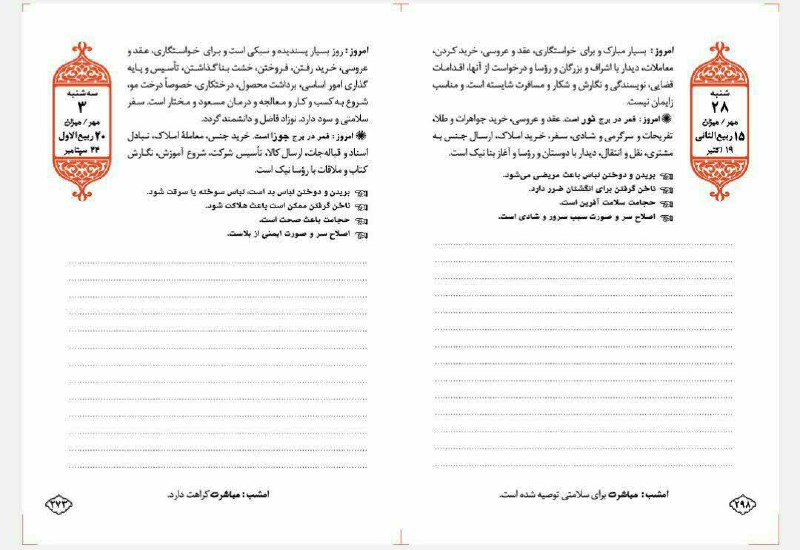 شنبه
۲۸
مهر / میزان
۱۵ ربیع‌الثانی
۱۹ اکتبر
امروز : بسیار مبارک و برای خواستگاری، عقد و عروسی، خرید کردن،
معاملات، دیدار با اشراف و بزرگان و رؤسا و درخواست از آنها، اقدامات
قضایی، نویسندگی و نگارش و شکار و مسافرت شایسته است. و مناسب
زایمان نیست.
امروز : قمر در برج ثور است. عقد و عروسی، خرید جواهرات و طلا،
تفریحات و سرگرمی و شادی، سفر، خرید املاک، ارسال جنس به
مشتری، نقل و انتقال، دیدار با دوستان و رؤسا و آغاز بنا نیک است.
بریدن و دوختن لباس باعث مریضی می‌شود.
ناخن گرفتن برای انگشتان ضرر دارد.
حجامت سلامت آفرین است.
اصلاح سر و صورت سبب سرور و شادی است.
امشب : مباشرت برای سلامتی توصیه شده است.
۲۹۸
سه‌شنبه
۳
مهر / میزان
۲۰ ربیع‌الاول
۲۴ سپتامبر
امروز : روز بسیار پسندیده و سبکی است و برای خواستگاری، عقد و
عروسی، خرید رفتن، فروختن، خشت بنا گذاشتن، تأسیس و پایه
گذاری امور اساسی، برداشت محصول، درختکاری، خصوصاً درخت مو،
شروع به کسب و کار و معالجه و درمان مسعود و مختار است. سفر
سلامتی و سود دارد. نوزاد فاضل و دانشمند گردد.
امروز : قمر در برج جوزا است. خرید جنس، معاملهٔ املاک، تبادل
اسناد و قباله‌جات، ارسال کالا، تأسیس شرکت، شروع آموزش، نگارش
کتاب و ملاقات با رؤسا نیک است.
بریدن و دوختن لباس بد است، لباس سوخته یا سرقت شود.
ناخن گرفتن ممکن است باعث هلاکت شود.
حجامت باعث صحت است.
اصلاح سر و صورت ایمنی از بلاست.
امشب : مباشرت کراهت دارد.
۲۷۳